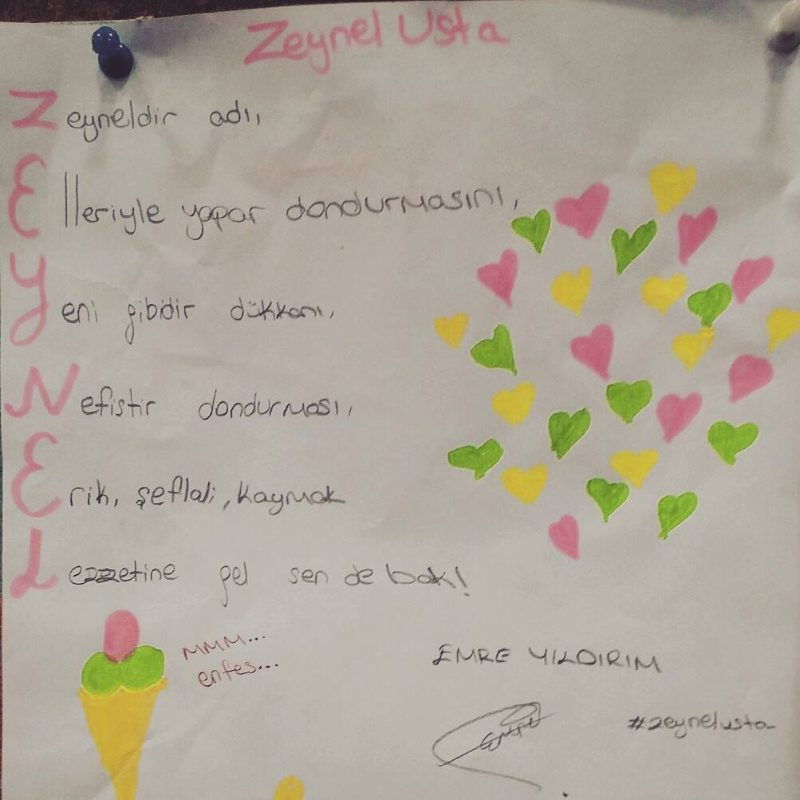 Zeynel Usta
Zeyneldir adı,
Elleriyle yapar dondurmasını,
Yeni gibidir dükkanı,
Nefistir dondurması,
Erik, şeftali, kaymak
Lezzetine gel sen de bak!
MMM...
enfes...
EMRE YILDIRIM
#zeynelusta